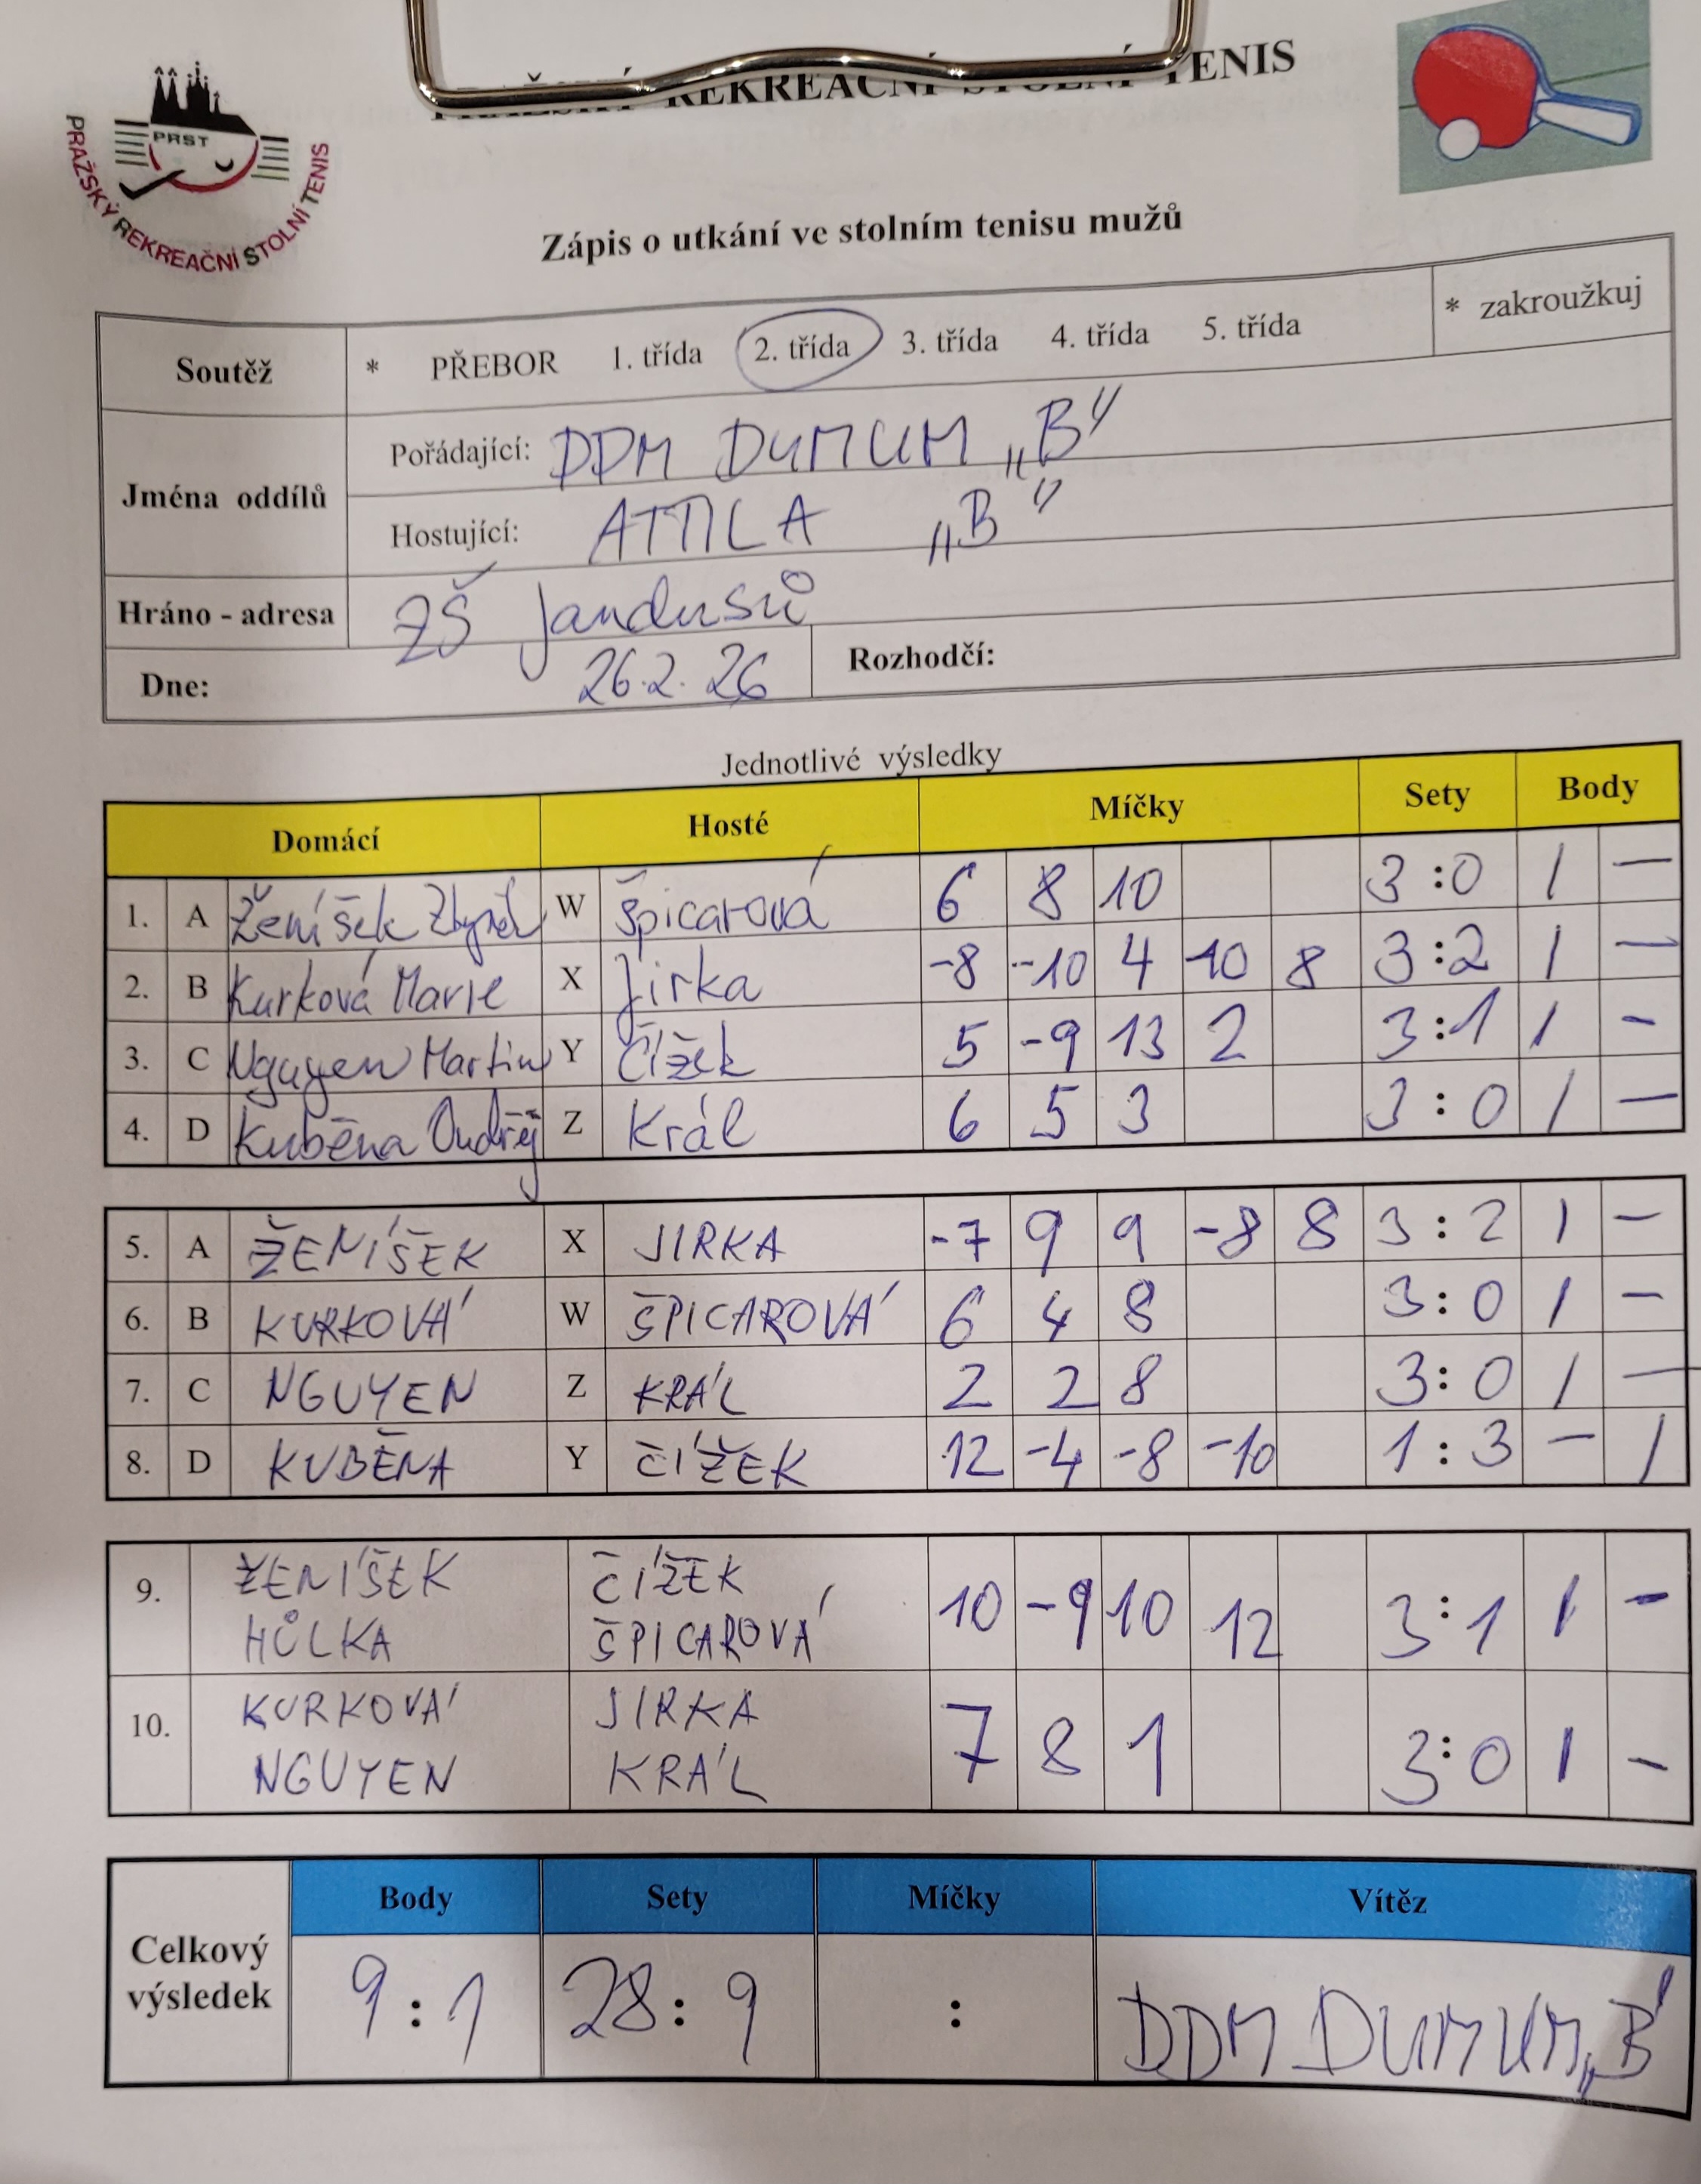 PRAŽSKÝ REKREAČNÍ STOLNÍ TENIS
PRST
PRAŽSKÝ REKREAČNÍ STOLNÍ TENIS
Zápis o utkání ve stolním tenisu mužů
Soutěž * PŘEBOR 1. třída 2. třída 3. třída 4. třída 5. třída * zakroužkuj
Jména oddílů
Pořádající: DDM DUMUM „B"
Hostující: ATTILA „B"
Hráno - adresa ZŠ Jandusů
Dne: 26.2.26 Rozhodčí:
Jednotlivé výsledky
Domácí Hosté Míčky Sety Body
1. A Ženíšek Zbyněk W Špicarová 6 8 10 3:0 1 –
2. B Kurková Marie X Jirka -8 -10 4 10 8 3:2 1 –
3. C Nguyen Martin Y Čížek 5 -9 13 2 3:1 1 –
4. D Kuběna Ondřej Z Král 6 5 3 3:0 1 –
5. A ŽENÍŠEK X JIRKA -7 9 9 -8 8 3:2 1 –
6. B KURKOVÁ W ŠPICAROVÁ 6 4 8 3:0 1 –
7. C NGUYEN Z KRÁL 2 2 8 3:0 1 –
8. D KUBĚNA Y ČÍŽEK 12 -4 -8 -10 1:3 – 1
9. ŽENÍŠEK ČÍŽEK 10 -9 10 12 3:1 1 –
HŮLKA ŠPICAROVÁ
10. KURKOVÁ JIRKA 7 8 1 3:0 1 –
NGUYEN KRÁL
Body Sety Míčky Vítěz
Celkový výsledek 9:1 28:9 : DDM DUMUM „B"